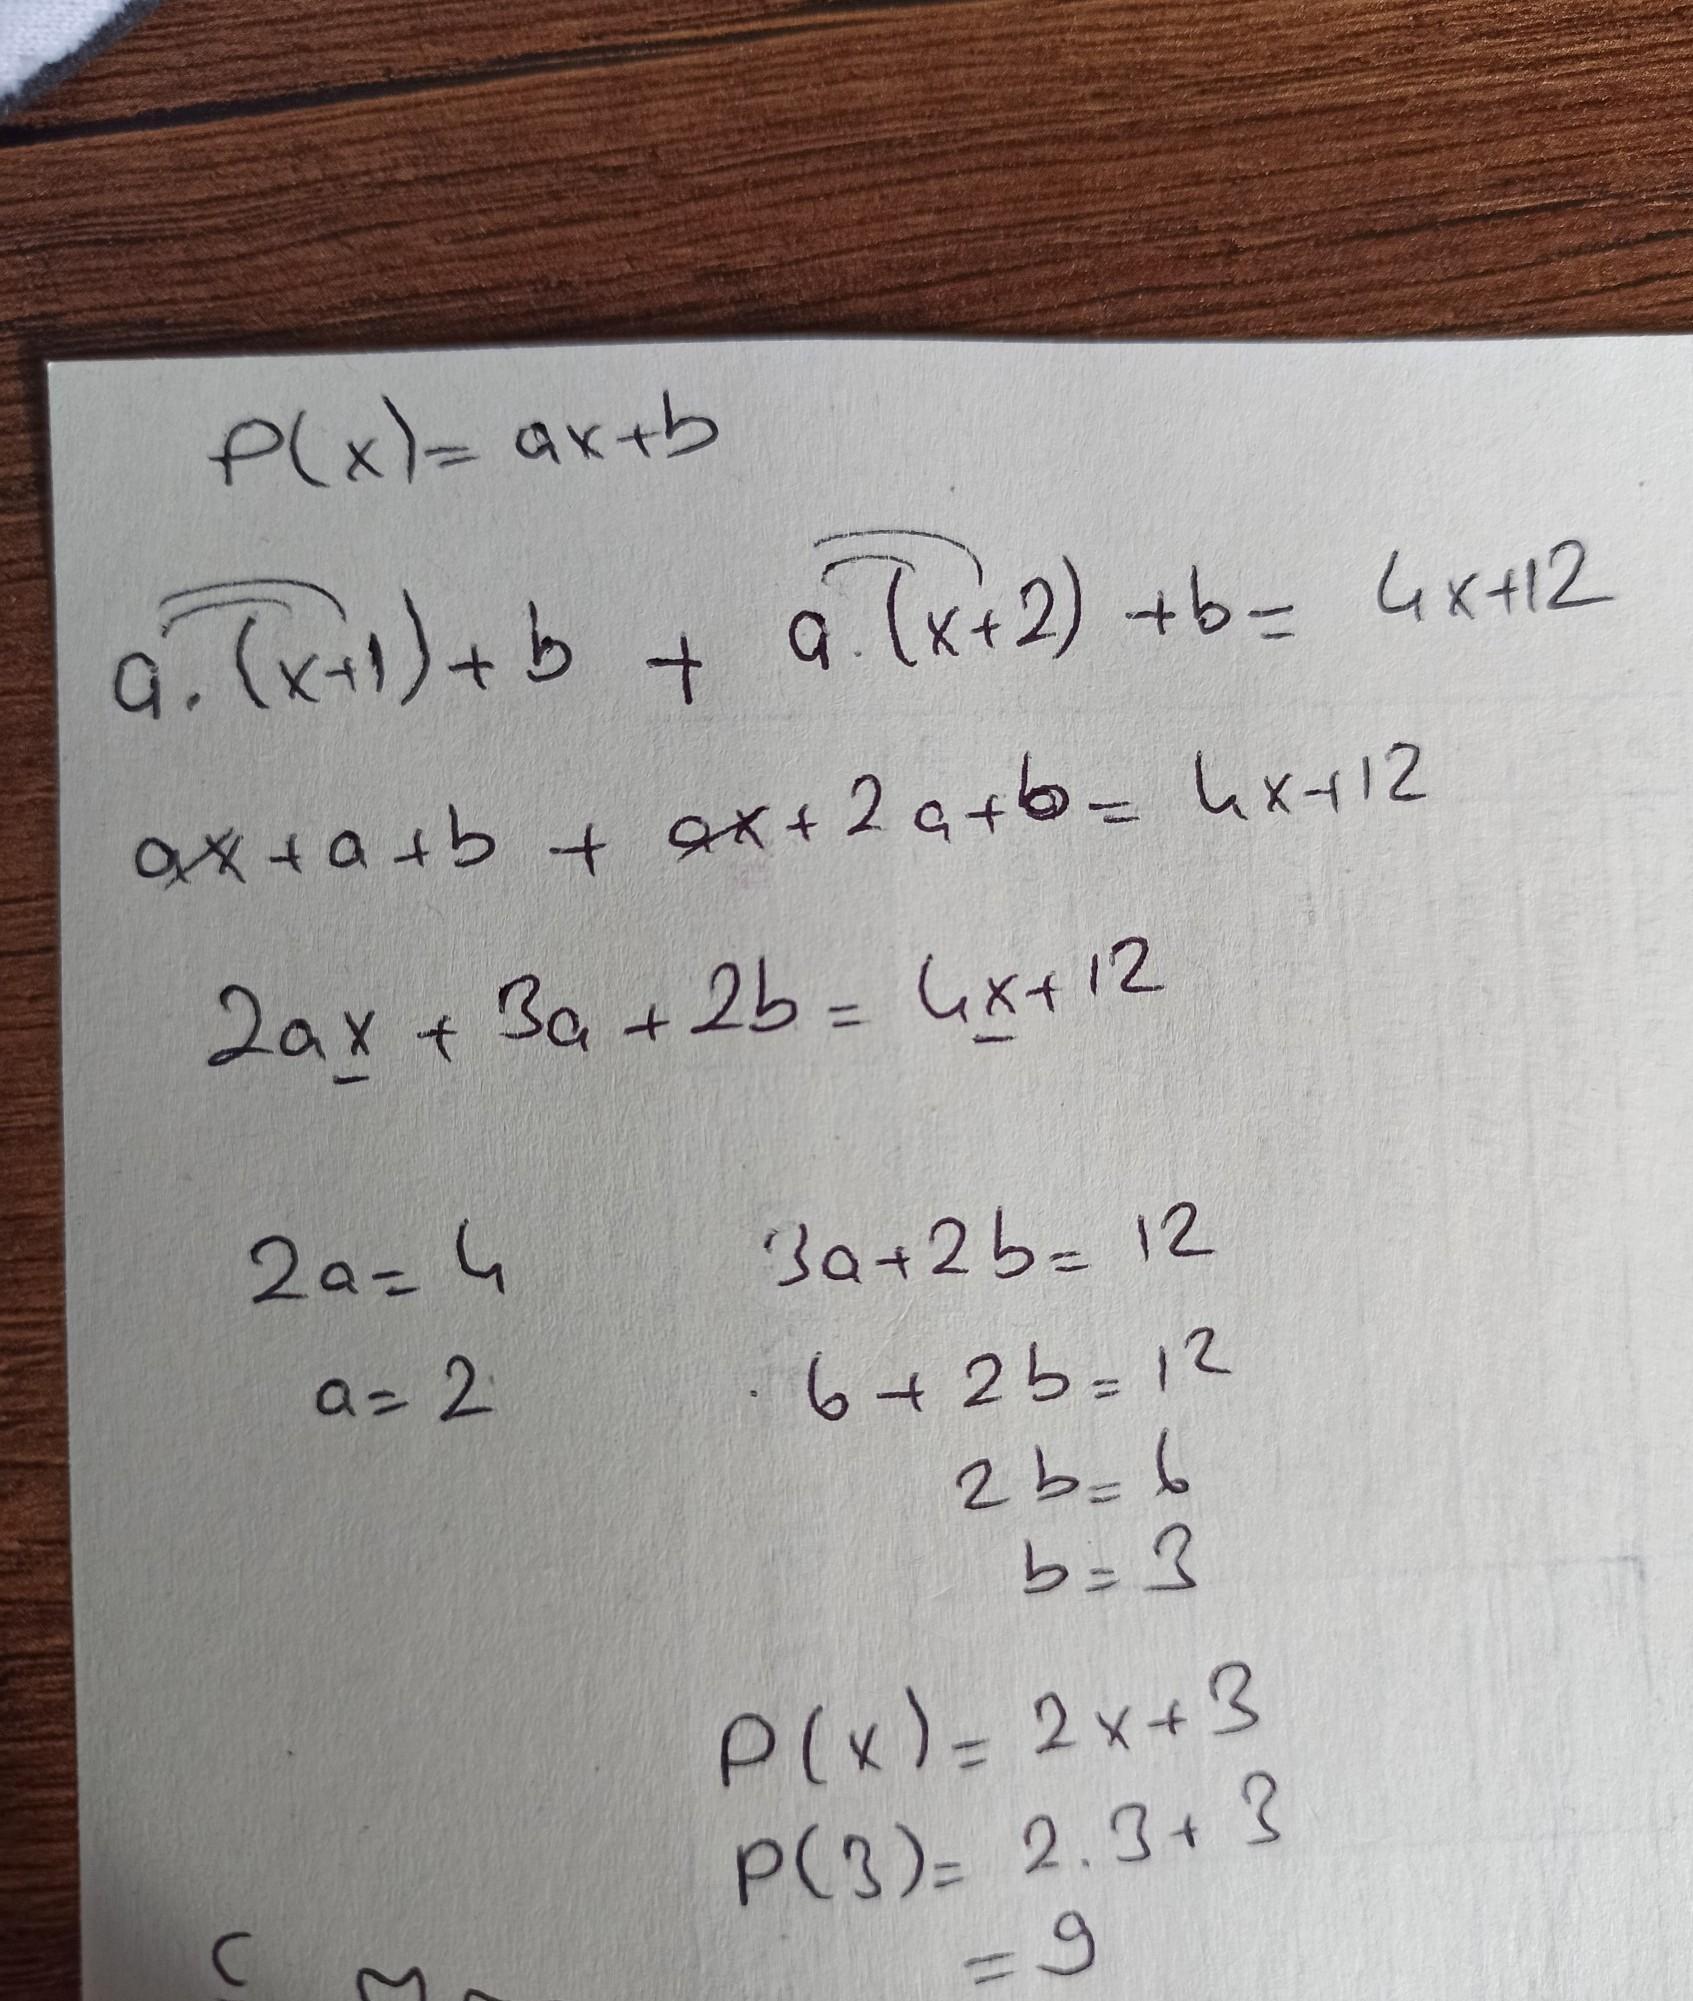 P(x)= ax+b
a.(x+1)+b + a.(x+2)+b= 4x+12
ax+a+b + ax+2a+b= 4x+12
2ax + 3a+2b= 4x+12
2a=4 3a+2b=12
a=2 6+2b=12
2b=6
b=3
P(x)= 2x+3
P(3)= 2.3+3
=9